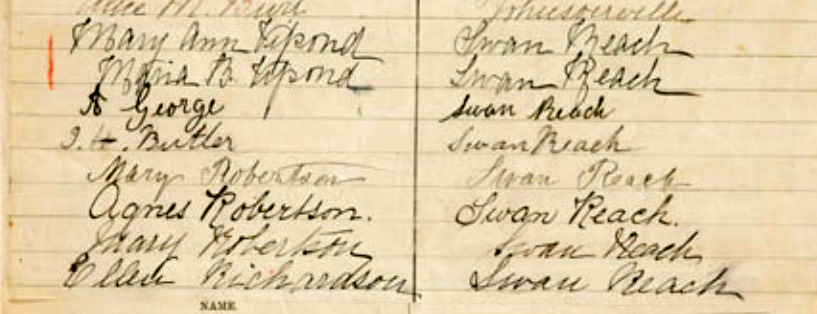 Alice M. Johnsonville
Mary Ann Upond Swan Reach
Maria B. Upond Swan Reach
A George Swan Reach
Butler Swan Reach
Mary Robertson Swan Reach
Agnes Robertson. Swan Reach.
Mary Robertson Swan Reach
Richardson Swan Reach
NAME